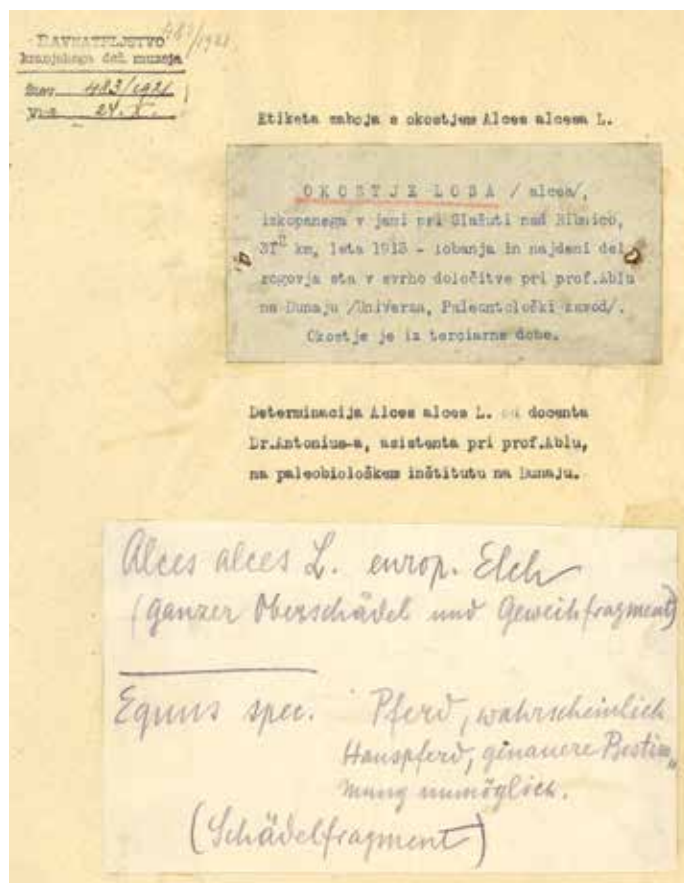 RAVNATELJSTVO
kranjskega dež. muzeja
483/1921
Štev. 483/1921
24. X.
Etiketa zaboja s okostjem Alces alcesa L.
OKOSTJE LOSA /alces/,
izkopanega v jami pri Glažuti nad Ribnico,
km, leta 1913 - lobanja in najdeni del
rogovja sta v svrho določitve pri prof.Ablu
na Dunaju /Univerza, Paleontološki zavod/.
Okostje je iz terciarne dobe.
Determinacija Alces alces L. od docenta
Dr.Antonius-a, asistenta pri prof.Ablu,
na paleobiološkem inštitutu na Dunaju.
Alces alces L. europ. Elch
(ganzer Oberschädel und Geweihfragment)
Equus spec. Pferd, wahrscheinlich
Hauspferd, genauere Bestim„
mung unmöglich.
(Schädelfragment)